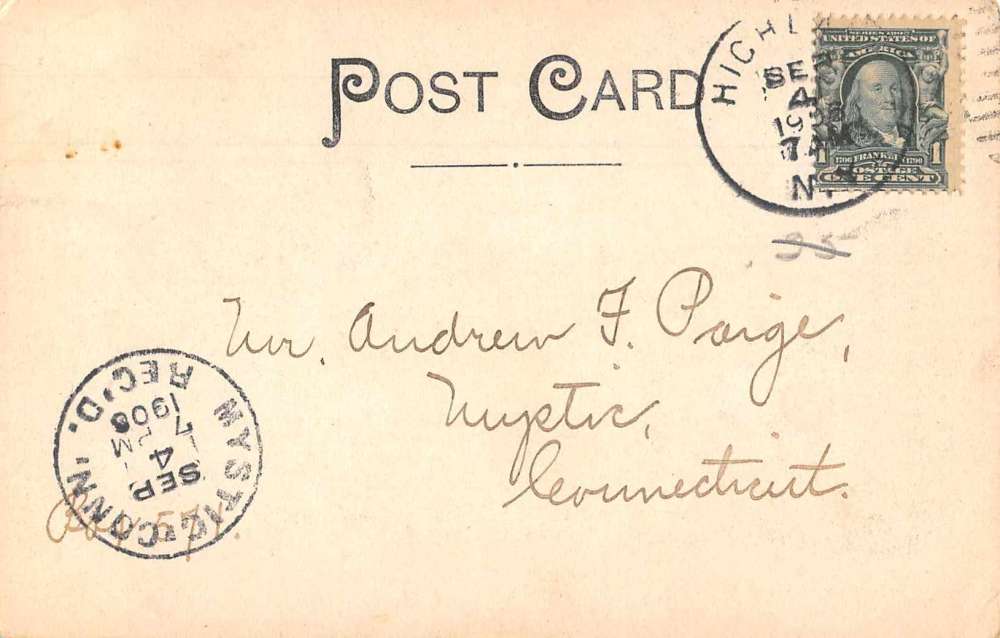 POST CARD
SERIES 1902
UNITED STATES OF
AMERICA
SEP
4
7 AM
N.Y.
1706 FRANKLIN 1790
1 POSTAGE 1
ONE CENT
35
Mr. Andrew F. Paige,
Mystic,
Connecticut.
MYSTIC, CONN.
SEP
4
7 PM
1906
REC'D.
Box 571.